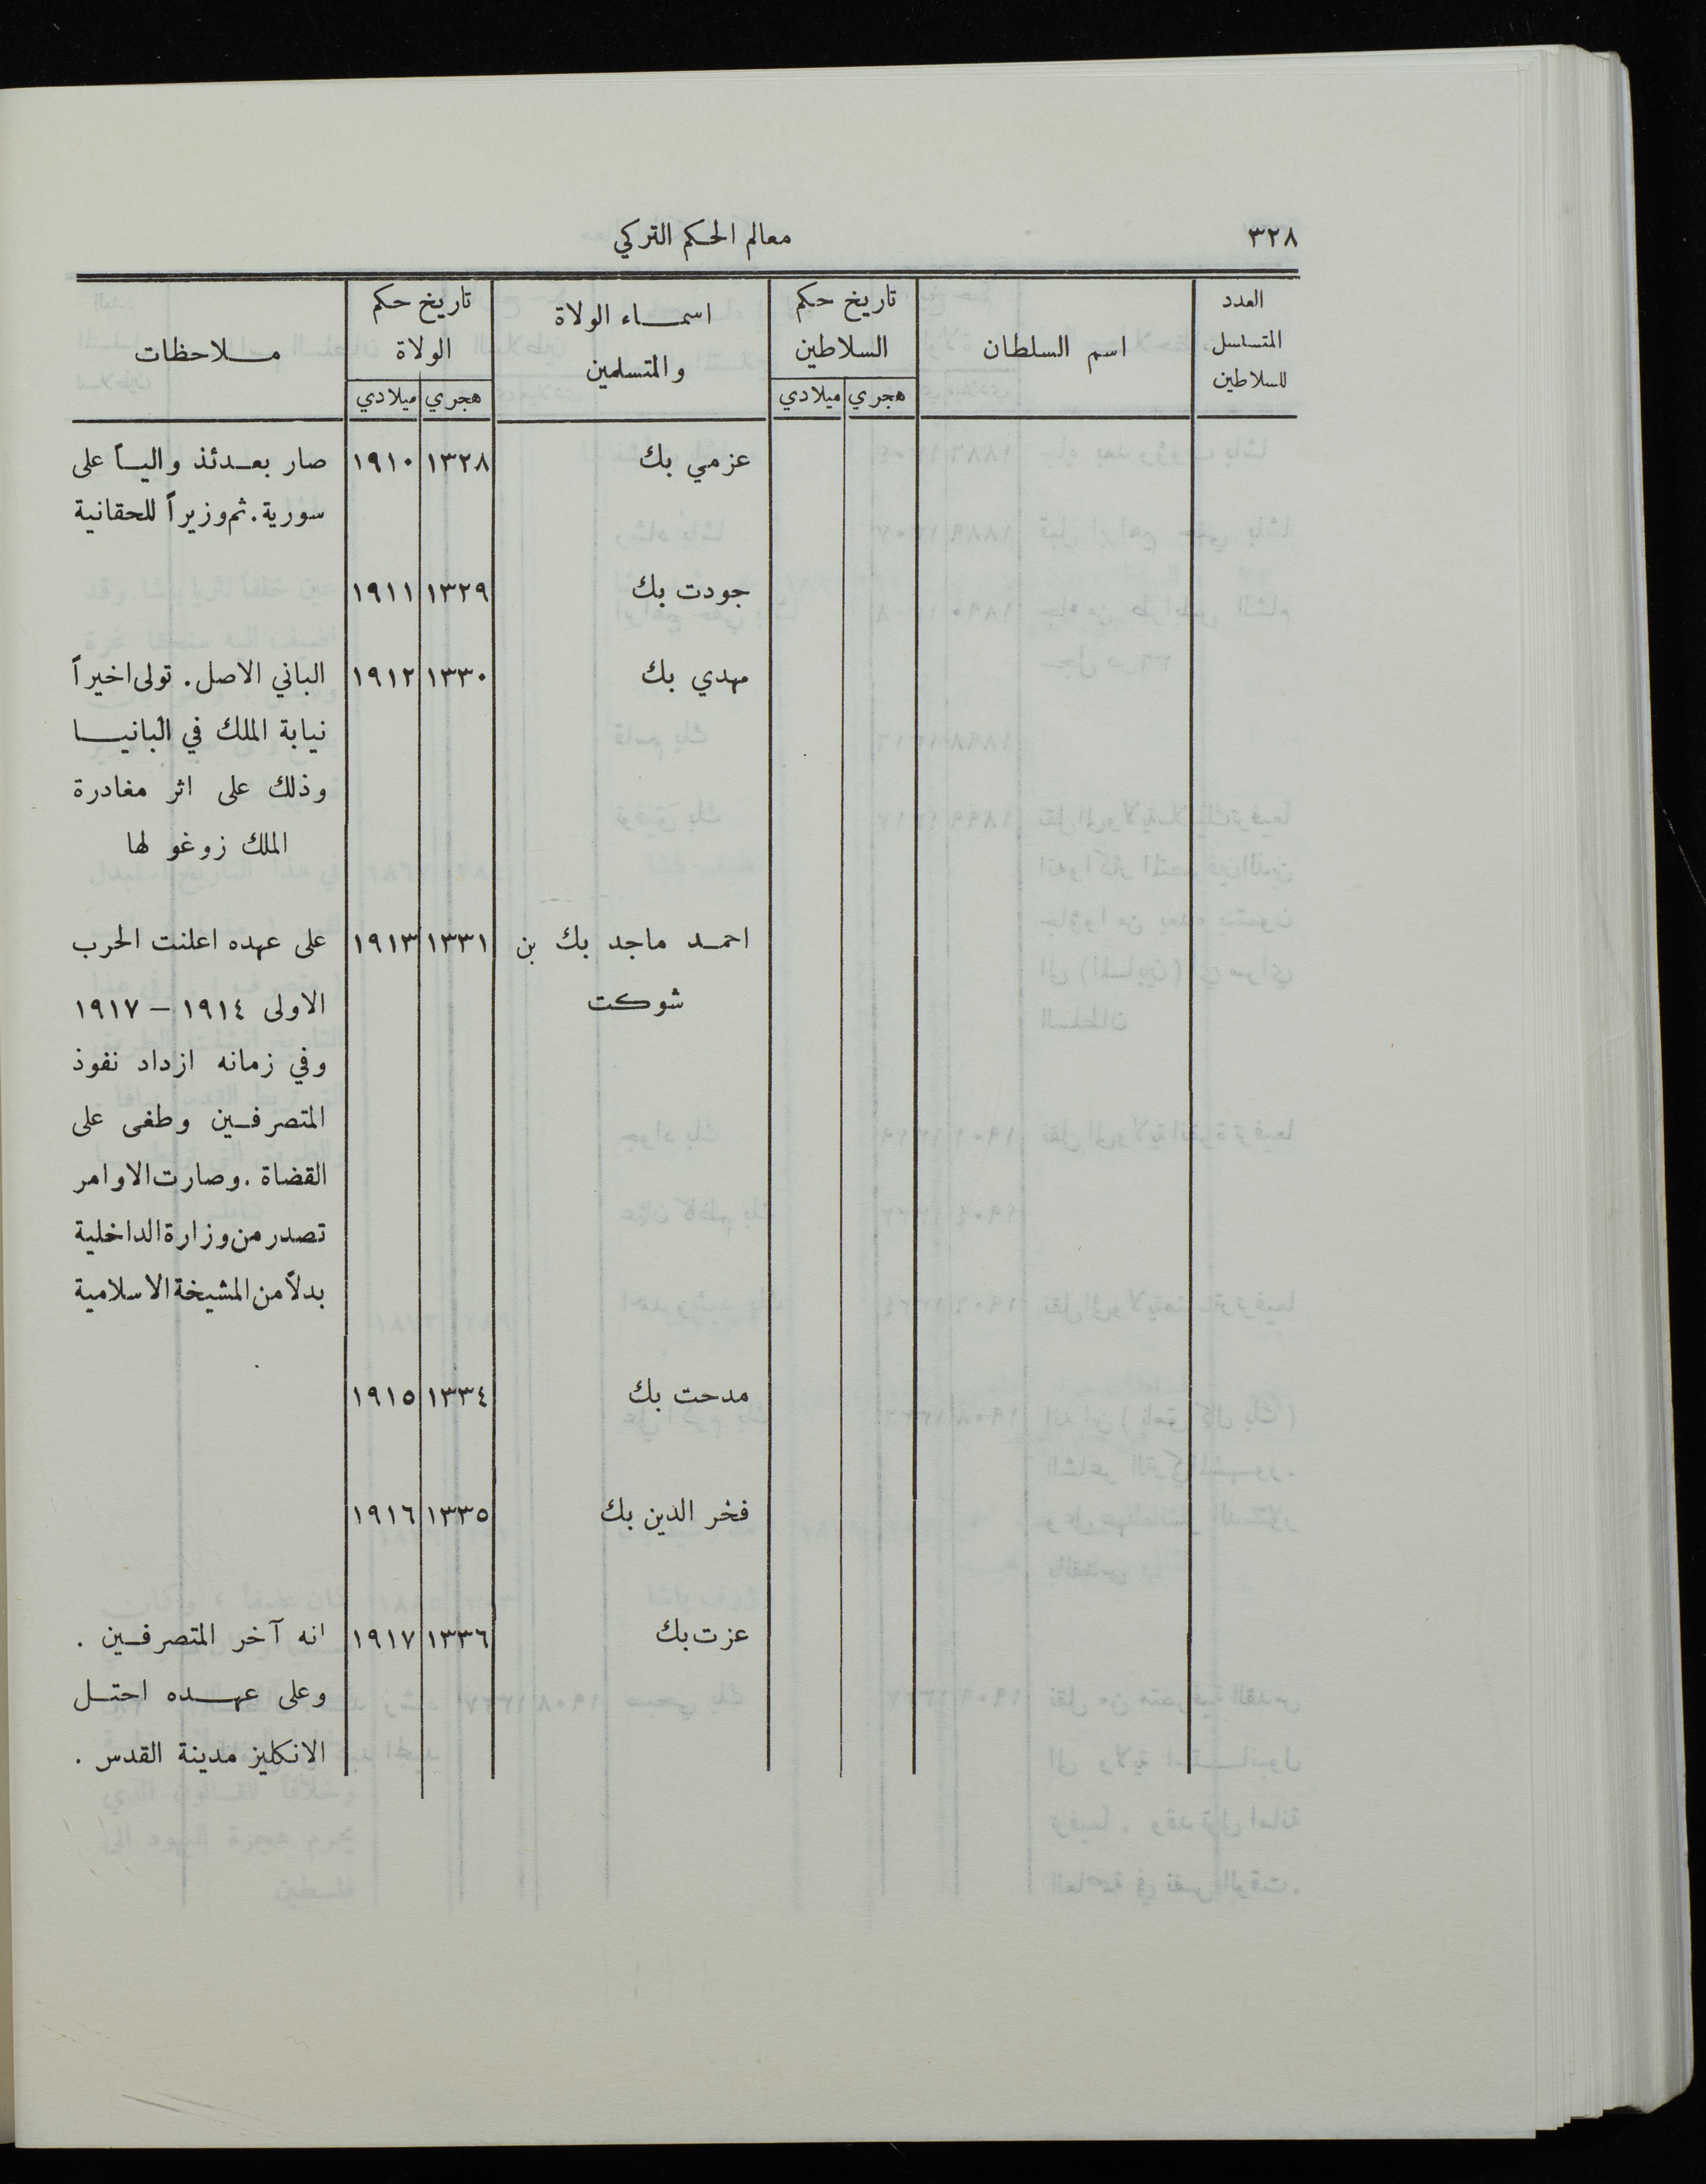 ٣٢٨
معالم الحكم التركي
العدد
المتسلسل
للسلاطين
اسم السلطان
تاريخ حكم
السلاطين
هجري ميلادي
اسماء الولاة
والمتسلمين
تاريخ حكم
الولاة
هجري ميلادي
ملاحظات
عزمي بك ١٣٢٨ ١٩١٠ صار بعدئذ والياً على
سورية. ثم وزيراً للحقانية
جودت بك ١٣٢٩ ١٩١١
مهدي بك ١٣٣٠ ١٩١٢ الباني الاصل. تولى اخيراً
نيابة الملك في البانيا
وذلك على اثر مغادرة
الملك زوغو لها
احمد ماجد بك بن ١٣٣١ ١٩١٣ على عهده اعلنت الحرب
شوكت الاولى ١٩١٤ – ١٩١٧
وفي زمانه ازداد نفوذ
المتصرفين وطغى على
القضاة. وصارت الاوامر
تصدر من وزارة الداخلية
بدلاً من المشيخة الاسلامية
مدحت بك ١٣٣٤ ١٩١٥
فخر الدين بك ١٣٣٥ ١٩١٦
عزت بك ١٣٣٦ ١٩١٧ انه آخر المتصرفين .
وعلى عهده احتل
الانكليز مدينة القدس .